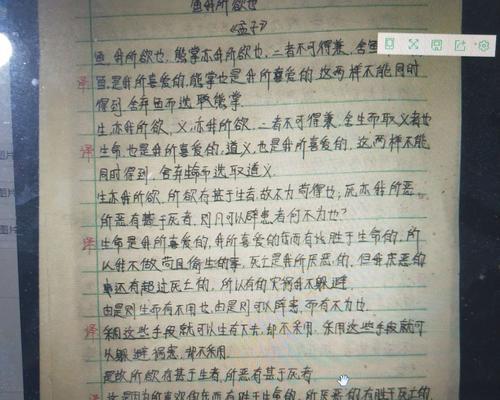 鱼我所欲也
《孟子》
鱼,我所欲也,熊掌亦我所欲也,二者不可得兼,舍鱼
译 鱼是我所喜爱的,熊掌也是我所喜爱的,这两样不能同时
得到,舍弃鱼而选取熊掌.
生亦我所欲,义,亦我所欲,二者不可得兼,舍生而取义者也
译 生命也是我所喜爱的,道义,也是我所喜爱的,这两样不能
同时得到,舍弃生命而选取道义.
生亦我所欲,所欲有甚于生者,故不为苟得也;死亦我所恶,
所恶有甚于死者,则凡可以辟患者何不为也?
译 生命是我所喜爱的,我所喜爱的东西有胜于生命的,所
以我不做苟且偷生的事,死亡是我所厌恶的,但我厌恶的
事还有超过死亡的,所以有的灾祸我不躲避.
由是则生而有不用也,由是则可以辟患,而有不为也.
译 采用这些手段就可以生存下去,却不采用,采用这些手段就可
以躲避祸患,却不采用.
是故所欲有甚于生者,所恶有甚于死者
译 这是因为所喜欢的东西有胜于生命的,所厌恶的有胜于死亡的
图片
图片